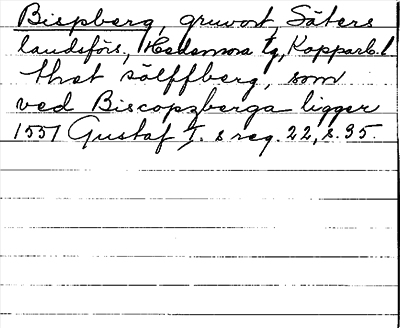 Bispberg, gruvort, Säters
landsförs., Hedemora tg, Kopparb. l
thet sölffberg, som
ved Biscopzberga ligger
1551 Gustaf I. s reg. 22, s. 35.